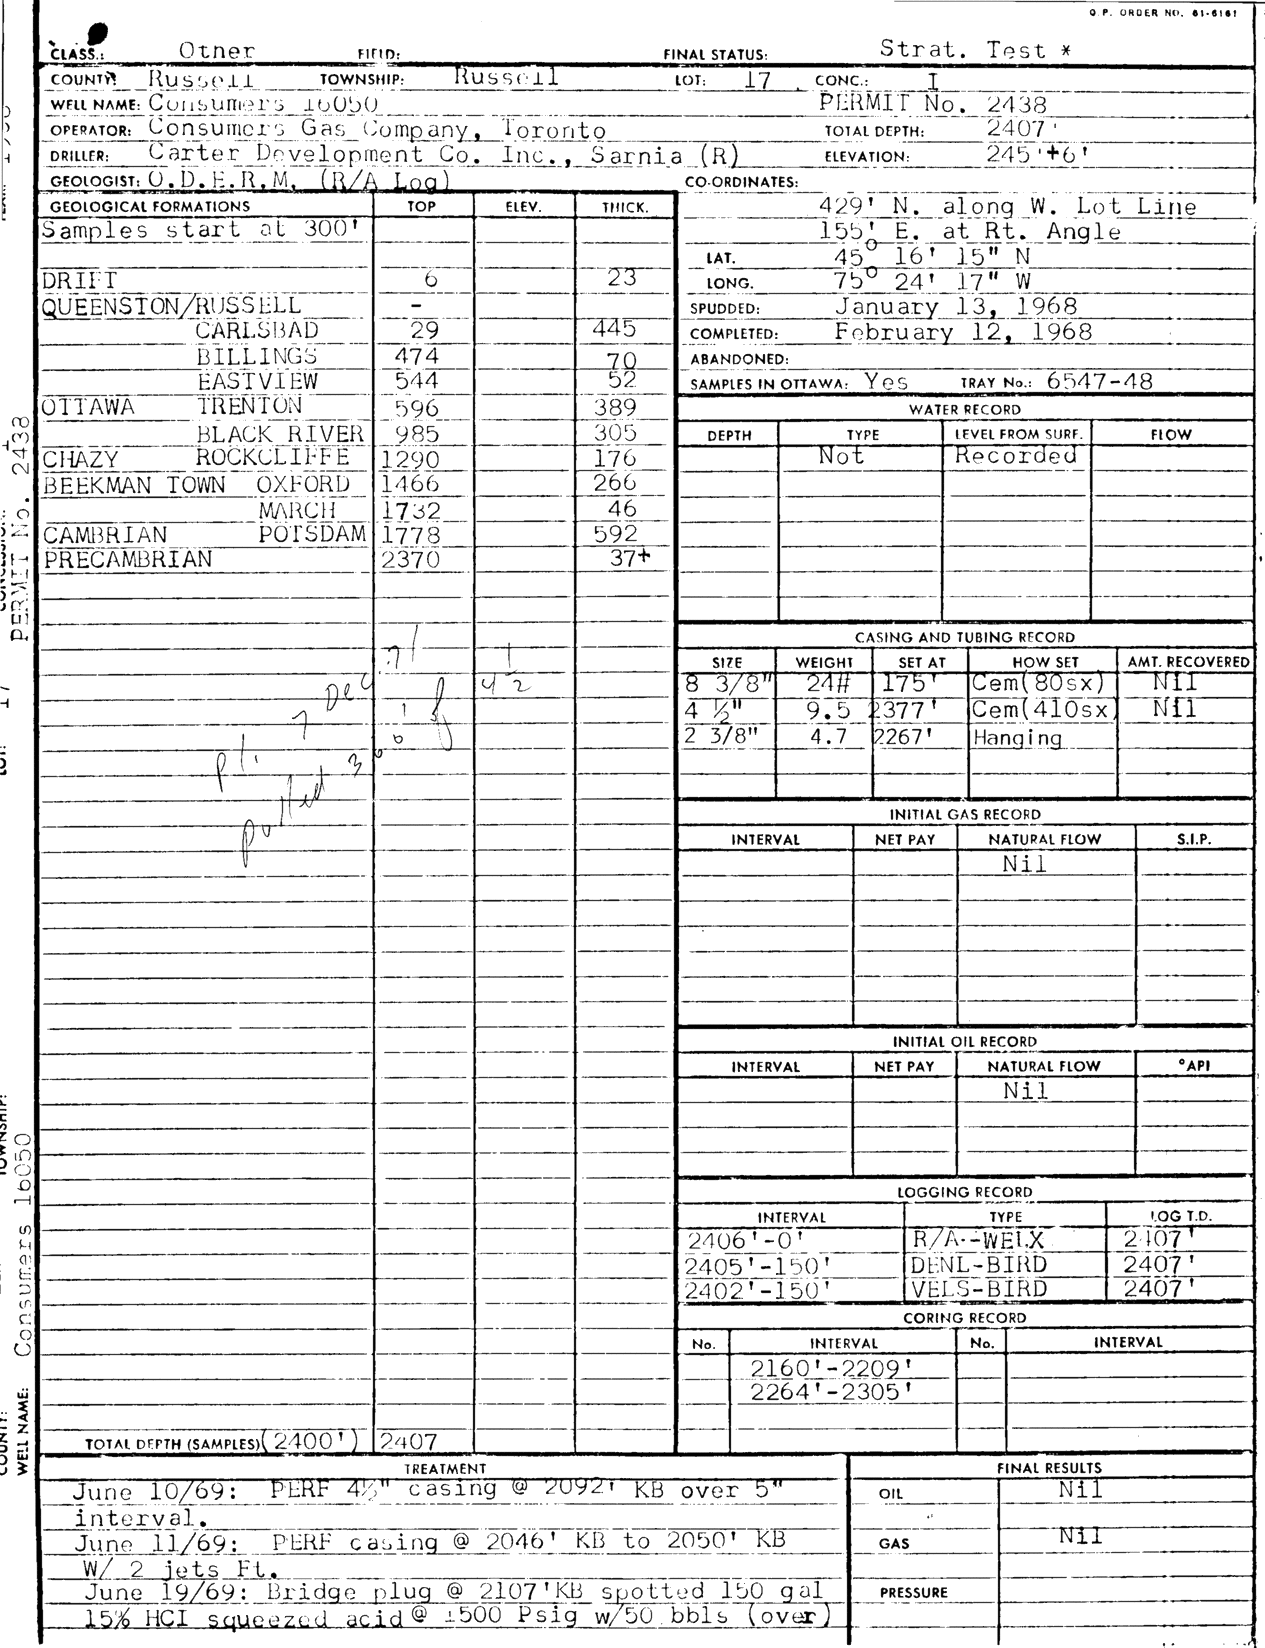 O.P. ORDER NO. 61-6161
CLASS.: Other FIELD: FINAL STATUS: Strat. Test *
COUNTY: Russell TOWNSHIP: Russell LOT: 17 CONC.: I
WELL NAME: Consumers 16050 PERMIT No. 2438
OPERATOR: Consumers Gas Company, Toronto TOTAL DEPTH: 2407'
DRILLER: Carter Development Co. Inc., Sarnia (R) ELEVATION: 245'+6'
GEOLOGIST: O.D.E.R.M. (R/A Log) CO-ORDINATES:
GEOLOGICAL FORMATIONS TOP ELEV. THICK.
Samples start at 300'
DRIFT 6 23
QUEENSTON/RUSSELL -
CARLSBAD 29 445
BILLINGS 474 70
EASTVIEW 544 52
OTTAWA TRENTON 596 389
BLACK RIVER 985 305
CHAZY ROCKCLIFFE 1290 176
BEEKMAN TOWN OXFORD 1466 266
MARCH 1732 46
CAMBRIAN POTSDAM 1778 592
PRECAMBRIAN 2370 37+
7 Dec 71
pulled 300' of 4 1/2
TOTAL DEPTH (SAMPLES) (2400') 2407
429' N. along W. Lot Line
155' E. at Rt. Angle
LAT. 45° 16' 15" N
LONG. 75° 24' 17" W
SPUDDED: January 13, 1968
COMPLETED: February 12, 1968
ABANDONED:
SAMPLES IN OTTAWA: Yes TRAY No.: 6547-48
WATER RECORD
DEPTH TYPE LEVEL FROM SURF. FLOW
Not Recorded
CASING AND TUBING RECORD
SIZE WEIGHT SET AT HOW SET AMT. RECOVERED
8 3/8" 24# 175' Cem(80sx) Nil
4 ½" 9.5 2377' Cem(410sx) Nil
2 3/8" 4.7 2267' Hanging
INITIAL GAS RECORD
INTERVAL NET PAY NATURAL FLOW S.I.P.
Nil
INITIAL OIL RECORD
INTERVAL NET PAY NATURAL FLOW °API
Nil
LOGGING RECORD
INTERVAL TYPE LOG T.D.
2406'-0' R/A--WELX 2407'
2405'-150' DENL-BIRD 2407'
2402'-150' VELS-BIRD 2407'
CORING RECORD
No. INTERVAL No. INTERVAL
2160'-2209'
2264'-2305'
TREATMENT
June 10/69: PERF 4½" casing @ 2092' KB over 5"
interval.
June 11/69: PERF casing @ 2046' KB to 2050' KB
W/ 2 jets Ft.
June 19/69: Bridge plug @ 2107'KB spotted 150 gal
15% HCI squeezed acid @ 1500 Psig w/50 bbls (over)
FINAL RESULTS
OIL Nil
GAS Nil
PRESSURE
PERMIT No. 2438
LOT: 17
WELL NAME: Consumers 16050
COUNTY:
TOWNSHIP: